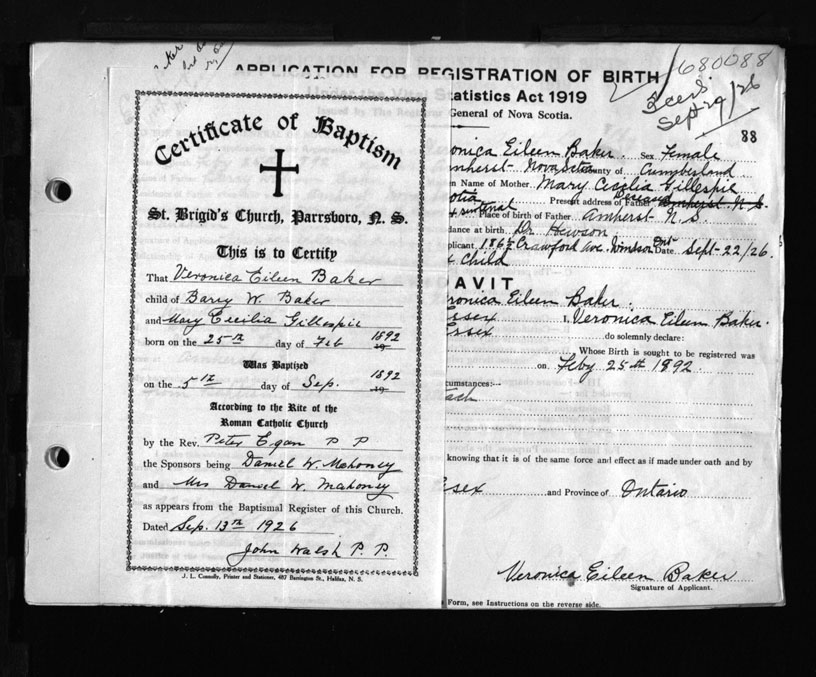 APPLICATION FOR REGISTRATION OF BIRTH
680088
Sept 29/26
Statistics Act 1919
General of Nova Scotia.
88
Certificate of Baptism
St. Brigid's Church, Parrsboro, N. S.
This is to Certify
That Veronica Eileen Baker
child of Barry W. Baker
and Mary Cecilia Gillespie
born on the 25th day of Feb 1892
19
Was Baptized
on the 5th day of Sep. 1892
19
According to the Rite of the
Roman Catholic Church
by the Rev. Peter Egan P P
the Sponsors being Daniel W. Mahoney
and Mrs Daniel W. Mahoney
as appears from the Baptismal Register of this Church.
Dated Sep. 13th 1926
John Walsh P. P.
J. L. Connolly, Printer and Stationer, 487 Barrington St., Halifax, N. S.
onica Eileen Baker. Sex Female
mherst Nova Scotia County of Cumberland
n Name of Mother Mary Cecilia Gillespie
otia Present address of Father Amherst N. S.
Place of birth of Father Amherst N. S.
dance at birth. Dr. Hewson
plicant 186 Crawford Ave. Windsor Ont Date Sept-22/26.
Child
DAVIT
ronica Eileen Baker.
Essex I, Veronica Eileen Baker.
Essex do solemnly declare:
Whose Birth is sought to be registered was
on Feby 25th 1892.
cumstances:—
tach
knowing that it is of the same force and effect as if made under oath and by
ssex and Province of Ontario
Veronica Eileen Baker
Signature of Applicant.
Form, see Instructions on the reverse side.